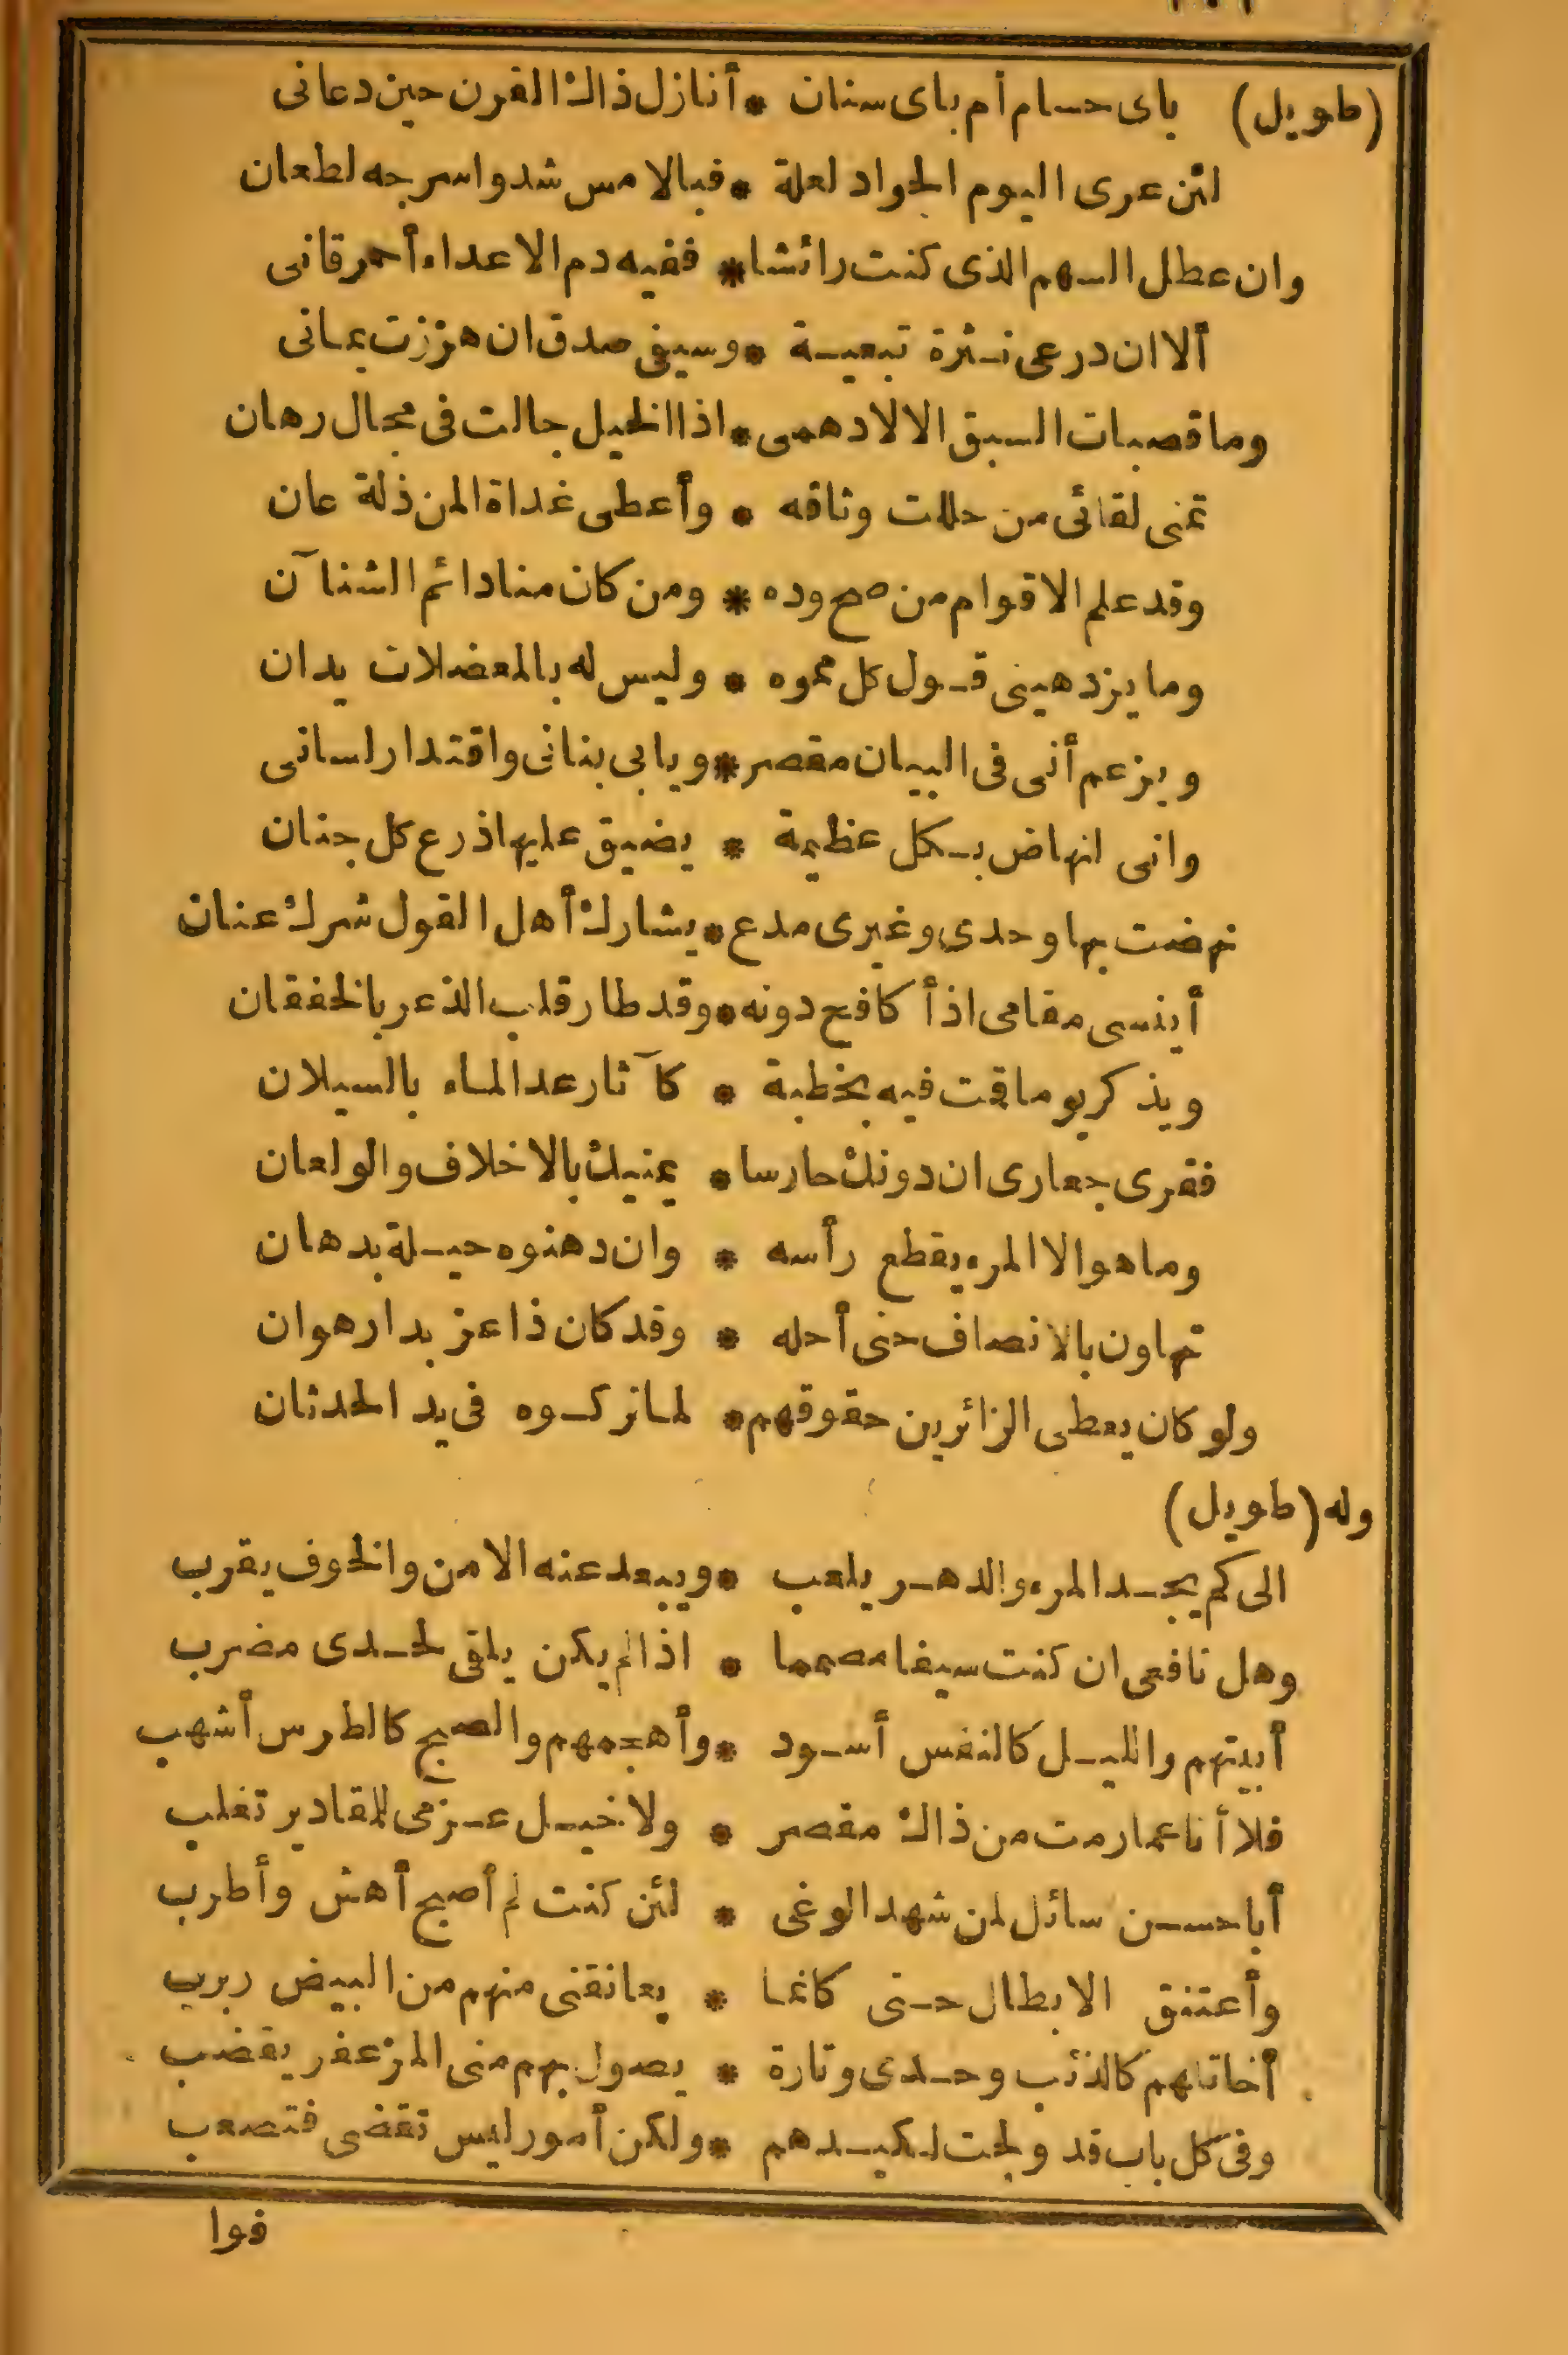 (طويل) باى حسام أم باى سنان * أنازل ذاك القرن حين دعانى
لئن عرى اليوم الجواد لعلة * فبالامس شدوا سرجه لطعان
وان عطل السهم الذى كنت رائشا * ففيه دم الاعداء أحمر قانى
ألا ان درعى نثرة تبعية * وسيفى صدق ان هززت يمانى
وما قصبات السبق الا لادهمى * اذا الخيل جالت فى مجال رهان
تمنى لقائى من حللت وثاقه * وأعطى غداة المن ذلة عان
وقد علم الاقوام من صح وده * ومن كان منا دائم الشنآن
وما يزدهينى قول كل مموه * وليس له بالمعضلات يدان
ويزعم أنى فى البيان مقصر * ويابى بنانى واقتدار لسانى
وانى لنهاض بكل عظيمة * يضيق عليها ذرع كل جنان
نهضت بها وحدى وغيرى مدع * يشارك أهل القول شرك عنان
أينسى مقامى اذ أكافح دونه * وقد طار قلب الذعر بالخفقان
ويذكر يوما قمت فيه بخطبة * كآثار عد الماء بالسيلان
فقرى جعارى ان دونك حارسا * يمنيك بالاخلاف والولعان
وما هو الا المرء يقطع رأسه * وان دهنوه حيلة بدهان
تهاون بالانصاف حتى أحله * وقد كان ذا عز بدار هوان
ولو كان يعطى الزائرين حقوقهم * لما تركوه فى يد الحدثان
وله (طويل)
الى كم يجد المرء والدهر يلعب * ويبعد عنه الامن والخوف يقرب
وهل نافعى ان كنت سيفا مصمما * اذا لم يكن يلقى لحدى مضرب
أبيتهم والليل كالنقس أسود * وأهجمهم والصبح كالطرس أشهب
فلا أنا عما رمت من ذاك مقصر * ولا خيل عزمى للمقادير تغلب
أبا حسن سائل لمن شهد الوغى * لئن كنت لم أصبح أهش وأطرب
وأعتنق الابطال حتى كانما * يعانقنى منهم من البيض ربرب
أخاتلهم كالذئب وحدى وتارة * يصول بهم منى المزعفر يقضب
وفى كل باب قد ولجت لكيدهم * ولكن أمور ليس تقضى فتصعب
فوا